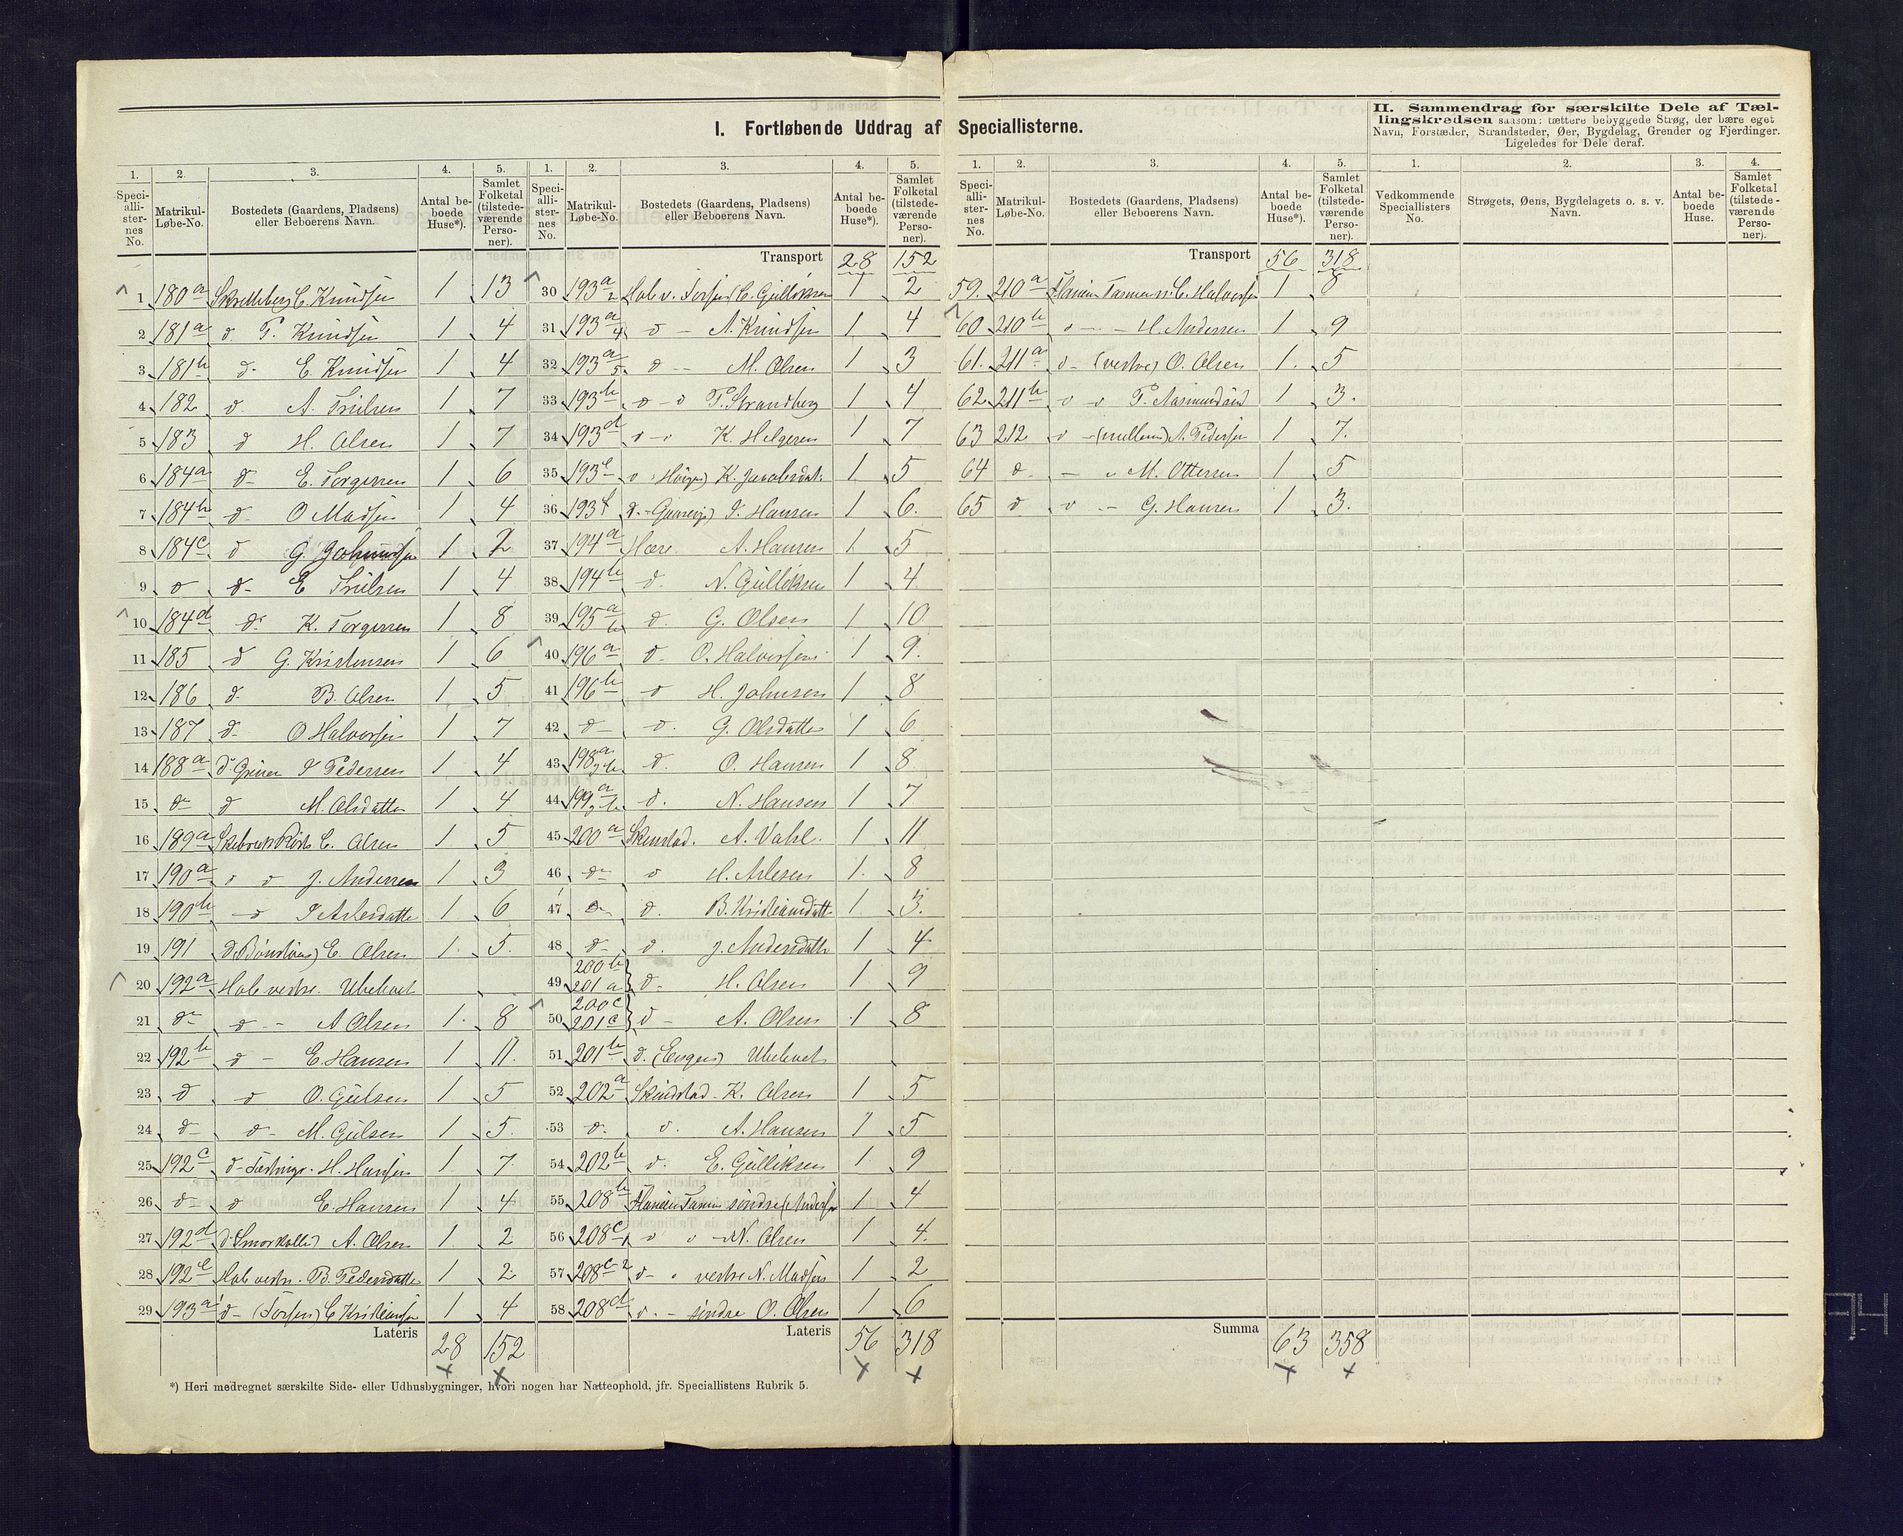 I. Fortløbende Uddrag af Speciallisterne.
II. Sammendrag for særskilte Dele af Tællingskredsen saasom: tættere bebyggede Strøg, der bære eget
Navn, Forstæder, Strandsteder, Øer, Bygdelag, Grender og Fjerdinger.
Ligeledes for Dele deraf.
1. 2. 3. 4. 5.
Speciallisternes No. Matrikul-Løbe-No. Bostedets (Gaardens, Pladsens) eller Beboerens Navn. Antal beboede Huse*). Samlet Folketal (tilstedeværende Personer).
1 180a C. Knudsen 1 13
2 181a d T. Knudsen 1 4
3 181b d- E. Knudsen 1 4
4 182 d A. Trulsen 1 7
5 183 d H. Olsen 1 7
6 184a d- E. Torgersen 1 6
7 184b d- O Madsen 1 4
8 184c d G. 1 2
9 d d- E Trulsen 1 4
10 184d d- K. Torgersen 1 8
11 185 d G. Kristensen 1 6
12 186 d- B. Olsen 1 5
13 187 d- O Halvorsen 1 7
14 188a d Pedersen 1 4
15 d- d M. Olsdatter 1 4
16 189a C. Olsen 1 5
17 190a d d J. Andersen 1 3
18 190b -d 1 6
19 191 d E. Olsen 1. 5.
20 192a Hob vestre. Ubeboet
21 d- d- - A Olsen 1. 8
22 192b d - E Hansen 1 11.
23 d d O. Gulsen 1 5
24 d- d- M. Gulsen 1 5.
25 192c d- H. Hansen 1. 7.
26 d- d E. Hansen 1 4
27 192d d A. Olsen 1. 2
28 192e Hob vestr. B. Pedersdatter 1 2
29 193a1 d- (Torsen) C Kristiansen 1 4
Lateris 28 152
1. 2. 3. 4. 5.
Speciallisternes No. Matrikul-Løbe-No. Bostedets (Gaardens, Pladsens) eller Beboerens Navn. Antal beboede Huse*). Samlet Folketal (tilstedeværende Personer).
Transport 28 152
30 193a2 Hob v. Torsen C. Gulliksen 1 2
31 193a4 d - A. Knudsen 1 4
32 193a5 d - M. Olsen 1 3
33 193b d - d T. Strandberg 1 4
34 193d d - d K. Helgesen 1 7
35 193e d K. Jacobsdat. 1 5
36 193f d - Hansen 1 6.
37 194a A. Hansen 1 5
38 194b d. N. Gulliksen 1 4
39 195a b d. G. Olsen 1 10
40 196a d- O. Halvorsen 1 9.
41 196b d H. Johnsen 1 8
42 d d. G. Olsdatter 1 6
43 198a b d O. Hansen 1 8.
44 199a b d. N. Hansen 1 7
45 200a Skinstad. A. Vahl. 1 11
46 d- d H. 1. 8
47 d- d. B. Kristiansdatt 1 3.
48 d- d. J. Andersdatter 1 4
49 200b 201a d- H. Olsen 1 9
50 200c 201c d - A. Olsen 1 8
51 201b d. (Engen) Ubeboet
52 202a Skindstad - K. Olsen 1 5
53 d. d. A. Hansen 1 5
54 202b d. E. Gulliksen 1. 9
55 208b søndre 1 4
56 208c1 d d - N. Olsen 1 4.
57 208c2 d- " vestre N. Madsen 1 2
58 208d d. - søndre O. Olsen 1 6
Lateris 56 318
1. 2. 3. 4. 5.
Speciallisternes No. Matrikul-Løbe-No. Bostedets (Gaardens, Pladsens) eller Beboerens Navn. Antal beboede Huse*). Samlet Folketal (tilstedeværende Personer).
Transport 56 318
59. 210a C. Halvorsen 1 8
60 210b d - - H. Andersen 1 9
61. 211a d - (vestre) O. Olsen 1. 5
62 211b d d T. Aasmundsen 1 3.
63 212 d - (mellem) A. Pedersen 1 7.
64 d - " M. Ottersen 1 5
65 d d - G. Hansen 1 3.
Summa 63 358
1. 2. 3. 4.
Vedkommende Speciallisters No. Strøgets, Øens, Bygdelagets o. s. v. Navn. Antal beboede Huse. Samlet Folketal (tilstedeværende Personer).
*) Heri medregnet særskilte Side- eller Udhusbygninger, hvori nogen har Natteophold, jfr. Speciallistens Rubrik 5.